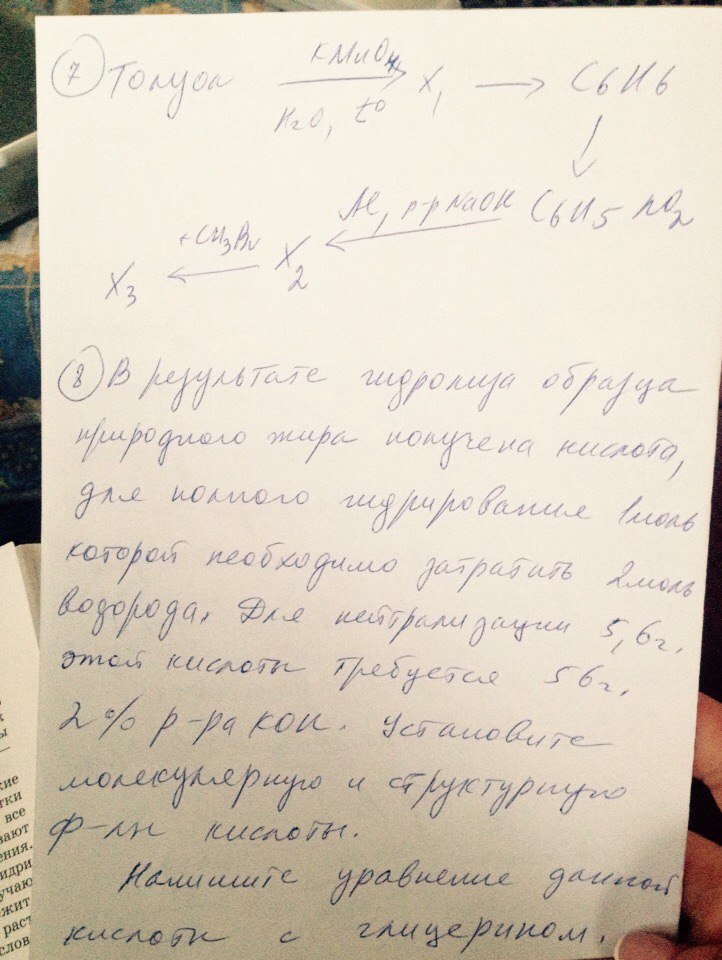 7 Толуол KMnO4 H2O, t° → X1 → C6H6
↓
Al, р-р NaOH C6H5NO2
X3 ← +CH3Br X2 ←
8 В результате гидролиза образца
природного жира получена кислота,
для полного гидрирования 1 моль
которой необходимо затратить 2 моль
водорода. Для нейтрализации 5,6 г.
этой кислоты требуется 56 г.
2% р-ра KOH. Установите
молекулярную и структурную
ф-лы кислоты.
Напишите уравнение данной
кислоты с глицерином.
кие
тки
все
вают
ения.
идри
учаю
жит
раст
слов